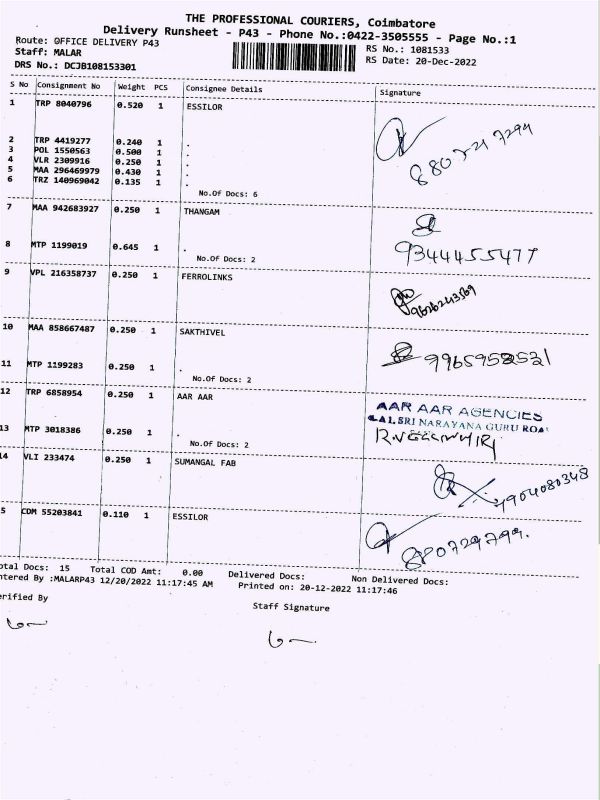 THE PROFESSIONAL COURIERS, Coimbatore
Delivery Runsheet - P43 - Phone No.:0422-3505555 - Page No.:1
Route: OFFICE DELIVERY P43 RS No.: 1081533
Staff: MALAR RS Date: 20-Dec-2022
DRS No.: DCJB108153301
S No Consignment No Weight PCS Consignee Details Signature
1 TRP 8040796 0.520 1 ESSILOR
2 TRP 4419277 0.240 1 .
3 POL 1550563 0.500 1 .
4 VLR 2309916 0.250 1 .
5 MAA 296469979 0.430 1 .
6 TRZ 140969042 0.135 1 .
No.Of Docs: 6
7 MAA 942683927 0.250 1 THANGAM
8 MTP 1199019 0.645 1 . 9344455477
No.Of Docs: 2
9 VPL 216358737 0.250 1 FERROLINKS
9626243569
10 MAA 858667487 0.250 1 SAKTHIVEL
9965952531
11 MTP 1199283 0.250 1 .
No.Of Docs: 2
12 TRP 6858954 0.250 1 AAR AAR
AAR AAR AGENCIES
SRI NARAYANA GURU ROA
13 MTP 3018386 0.250 1 .
No.Of Docs: 2
14 VLI 233474 0.250 1 SUMANGAL FAB
9904080348
5 CDM 55203841 0.110 1 ESSILOR
otal Docs: 15 Total COD Amt: 0.00 Delivered Docs: Non Delivered Docs:
ntered By :MALARP43 12/20/2022 11:17:45 AM Printed on: 20-12-2022 11:17:46
erified By Staff Signature